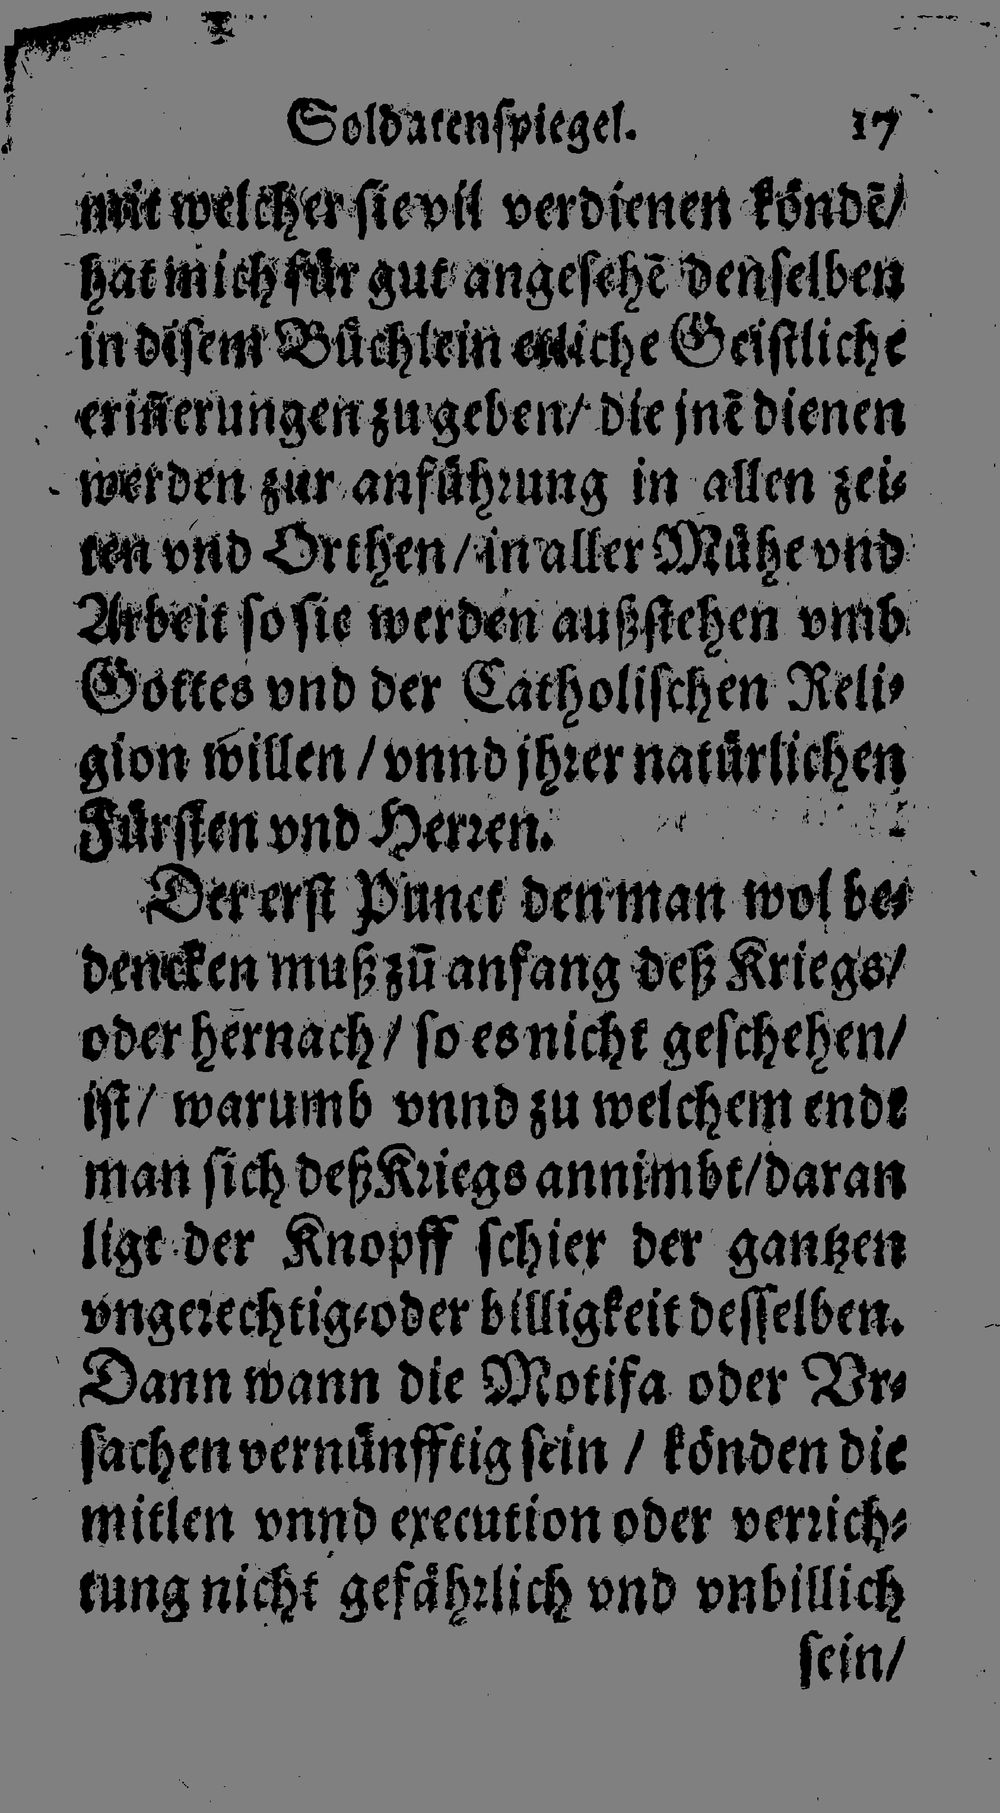 Soldatenspiegel. 17
mit welcher sie vil verdienen köndē/
hat mich für gut angesehē denselben
in disem Büchlein etliche Geistliche
erin̄erungen zu geben/ die jnē dienen
werden zur anführung in allen zei-
ten vnd Orthen / in aller Mühe vnd
Arbeit so sie werden außstehen vmb
Gottes vnd der Catholischen Reli-
gion willen / vnnd jhrer natürlichen
Fürsten vnd Herren.
Der erst Punct den man wol be-
dencken muß zū anfang deß Kriegs/
oder hernach / so es nicht geschehen/
ist/ warumb vnnd zu welchem ende
man sich deß Kriegs annimbt/daran
ligt der Knopff schier der gantzen
vngerechtig-oder billigkeit desselben.
Dann wann die Motifa oder Vr-
sachen vernünfftig sein / könden die
mitlen vnnd execution oder verrich-
tung nicht gefährlich vnd vnbillich
sein/